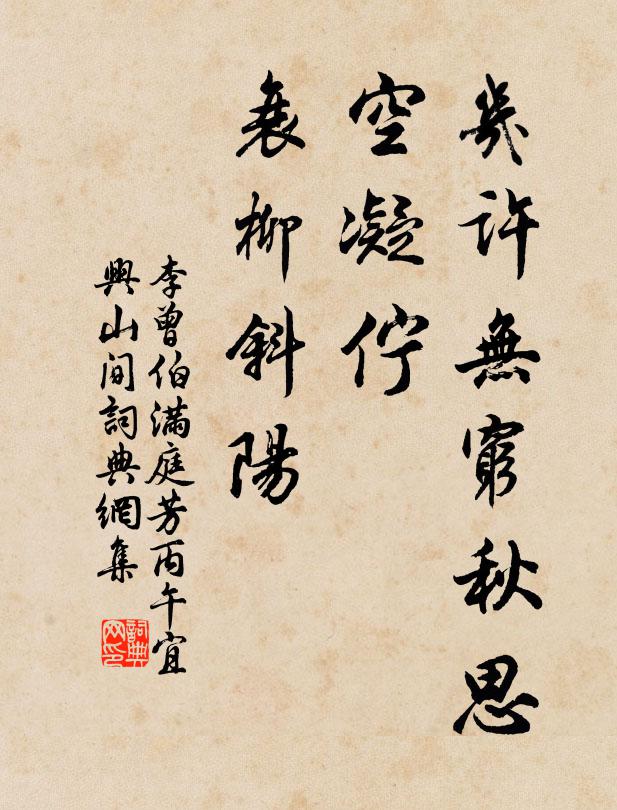 幾許無窮秋思
空凝佇
衰柳斜陽
李曾伯滿庭芳丙午宜
興山間詞典網集
詞典
网印